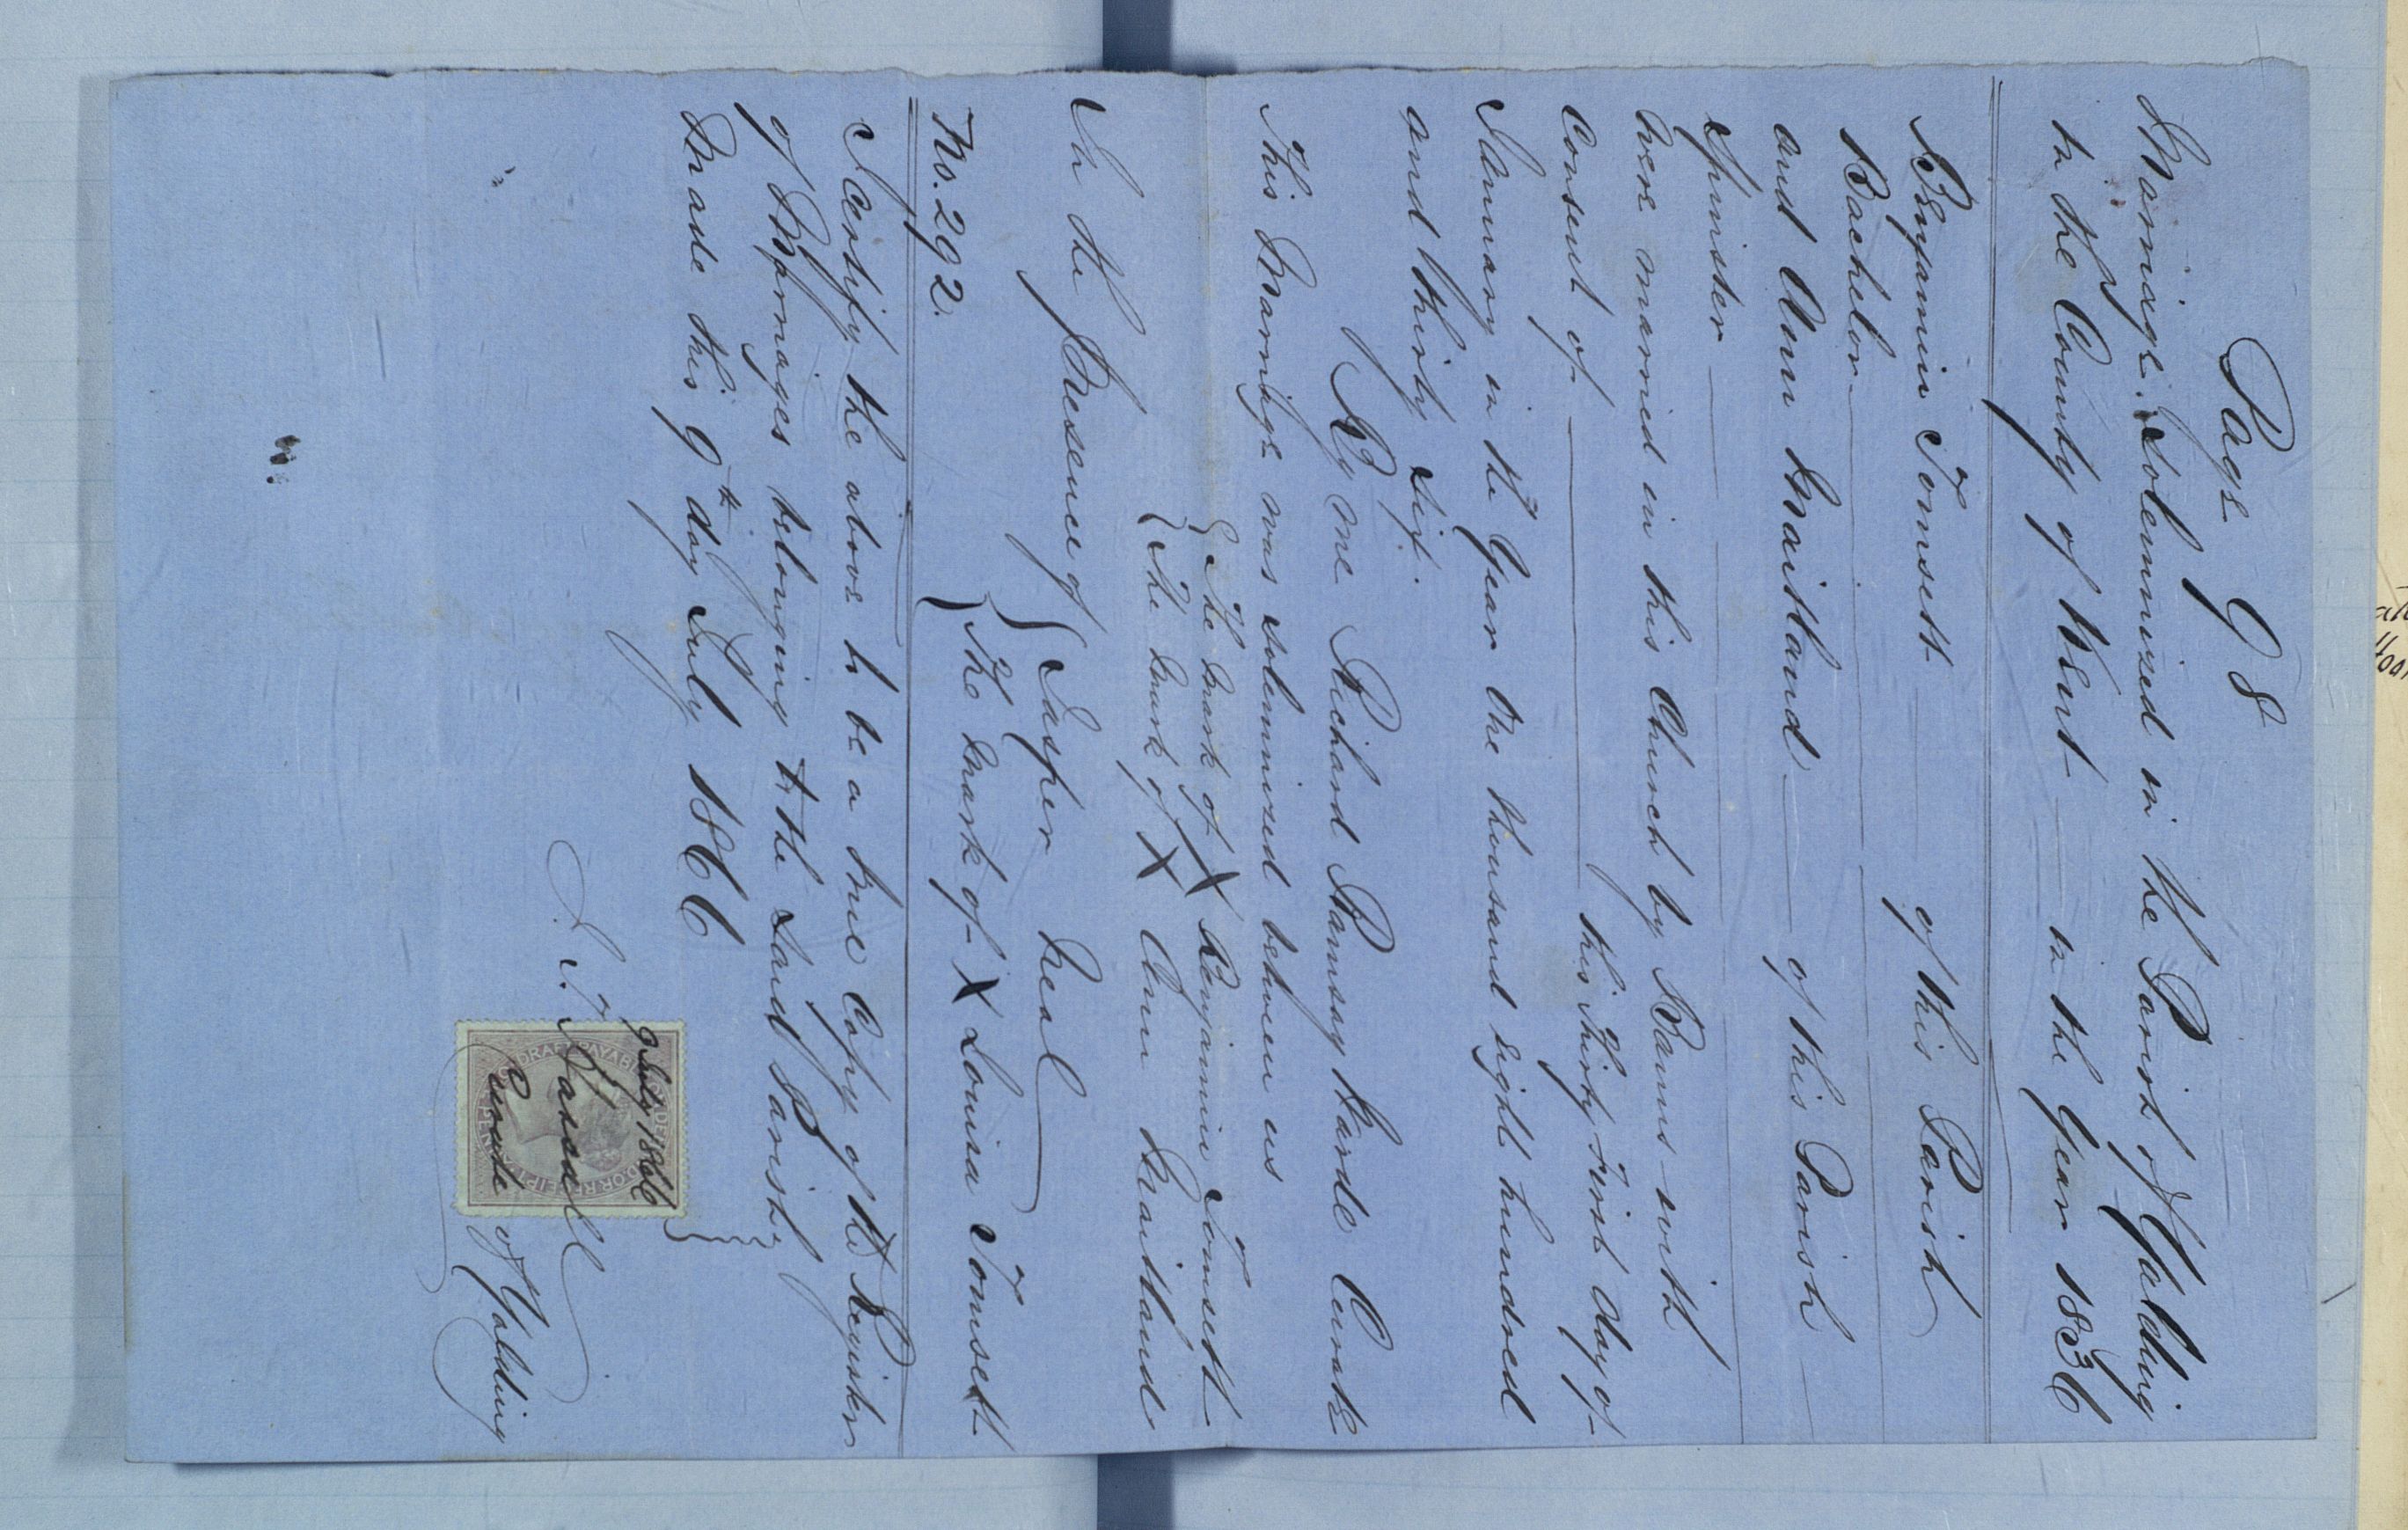 Page 98
Marriage Solemnized in the Parish of Yalding
in the County of Kent in the Year 1836
Benjamin Tomsett of this Parish
Bachelor
and Ann Maitland of this Parish
Spinster
were married in this Church by Banns with
Consent of this Thirty First day of
January in the Year One thousand eight hundred
and thirty six.
By me Richard Ramsay Warde Curate
This Marriage was solemnized between us
{ The Mark of X Benjamin Tomsett
{ The Mark of X Ann Maitland
In the Presence of { Jasper Neal
{ The Mark of X Louisa Tomsett
No. 292.
I Certify the above to be a true Copy of the Register
of Marriages belonging to the said Parish,
Made this 9th day July 1866
9 July 1866
Curate of Yalding
DRAFT PAYABLE
OR RECEIPT